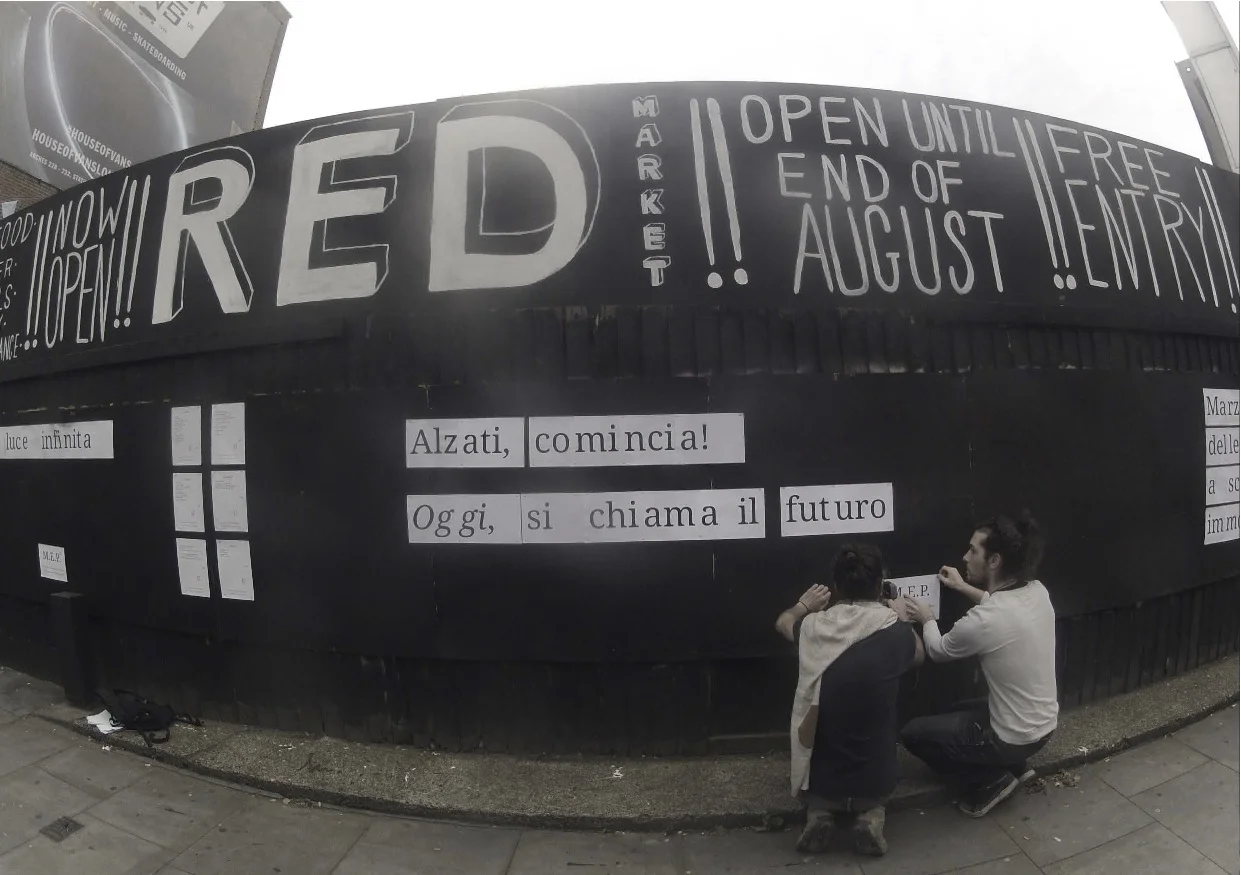 MUSIC - SKATEBOARDING
#HOUSEOFVANS
HOUSEOFVANSLO
!! NOW
OPEN !!
RED
MARKET
!! OPEN UNTIL
END OF
AUGUST
!! FREE
ENTRY !!
luce infinita
M.E.P.
Alzati, comincia!
Oggi, si chiama il futuro
M.E.P.
Marz
delle
a sc
immo